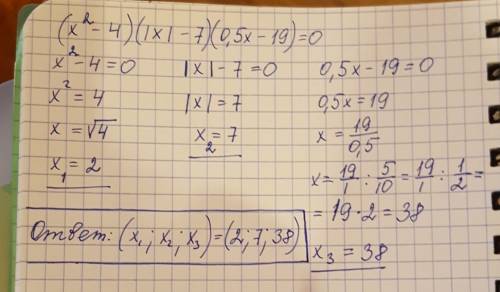 (x² - 4)(|x| - 7)(0,5x - 19) = 0
x² - 4 = 0
x² = 4
x = √4
x₁ = 2
|x| - 7 = 0
|x| = 7
x₂ = 7
0,5x - 19 = 0
0,5x = 19
x = 19/0,5
x = 19/1 : 5/10 = 19/1 : 1/2 =
= 19 · 2 = 38
x₃ = 38
Ответ: (x₁; x₂; x₃) = (2; 7; 38)